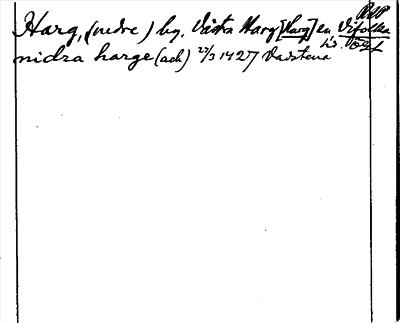 RAP
Harg, (nedre) by, Västra Harg [Harg] sn, Vifolka
hd. Ög
nidra harge (ack) 23/3 1427 Vadstena